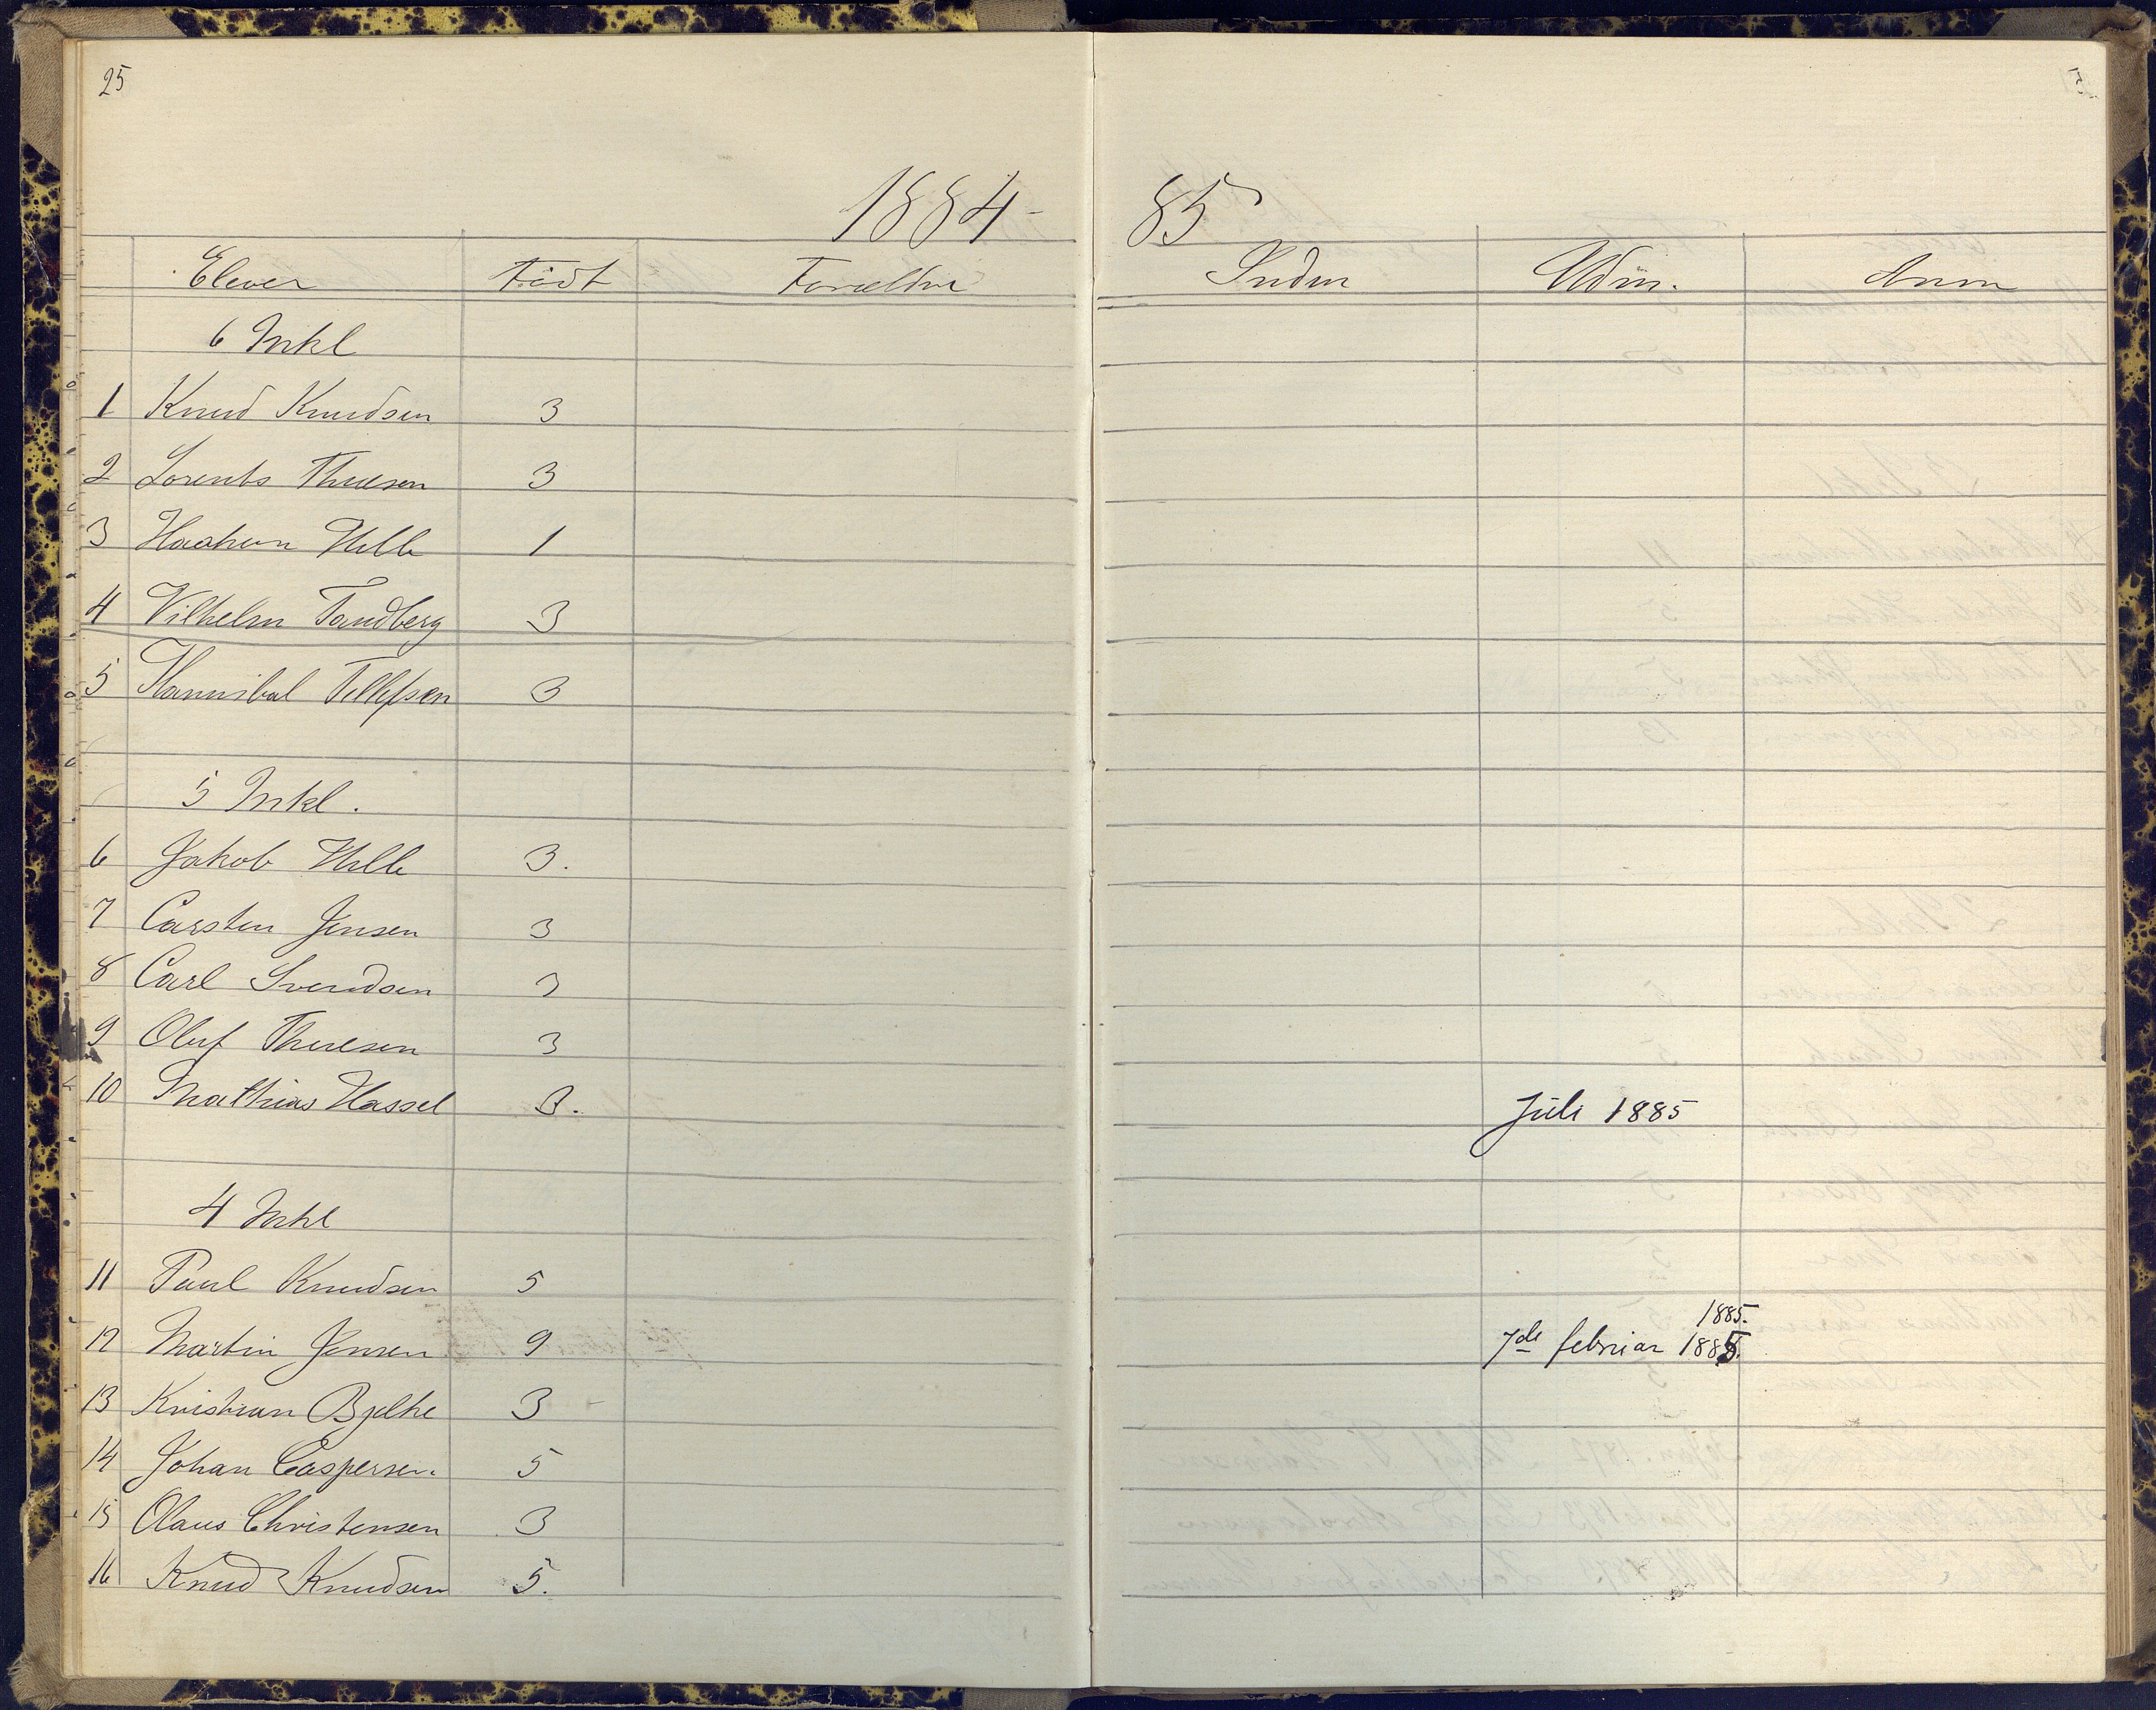 25
1884-85
Elever Födt Forældre Indm Udm. Anm
6 Mkl
1 Knud Knudsen 3
2 Lorents Thuesen 3
3 Haakon Helle 1
4 Vilhelm Tandberg 3
5 Hannibal Tellefsen 3
5 Mkl.
6 Jakob Helle 3.
7 Carsten Jensen 3
8 Carl Svendsen 3
9 Oluf Thuesen 3
10 Mathias Hassel 3. Juli 1885
4 Mkl
11 Paul Knudsen 5
1885.
12 Martin Jensen 9 7de februar 1885.
13 Kristian Bjelke 3
14 Johan Caspersen. 5
15 Olaus Christensen 3
16 Knud Knudsen 5.